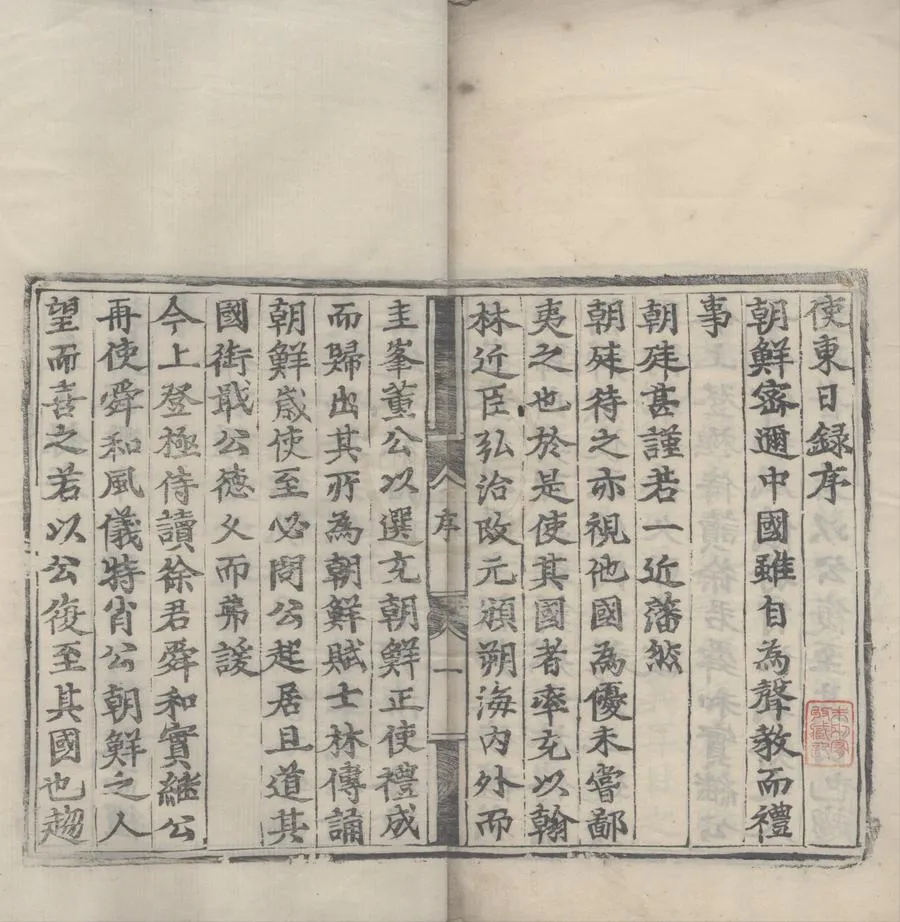 使東日録序
朝鮮密邇中國雖自為聲教而禮
事
朝廷甚謹若一近藩然
朝廷待之亦視他國為優未嘗鄙
夷之也於是使其國者率充以翰
林近臣弘治改元頒朔海内外而
序
一
圭峯董公以選充朝鮮正使禮成
而歸出其所為朝鮮賦士林傳誦
朝鮮歲使至必問公起居且道其
國銜戢公德久而弗諼
今上登極侍讀徐君舜和實繼公
再使舜和風儀特肖公朝鮮之人
望而喜之若以公復至其國也趨